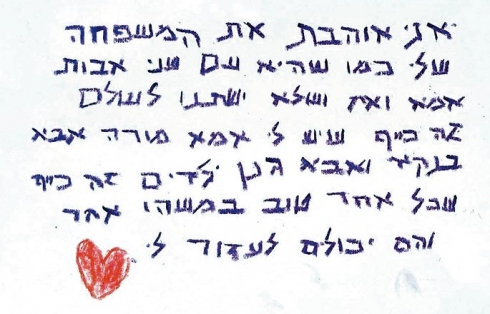 אני אוהבת את המשפחה
שלי כמו שהיא עם שני אבות
אמא ואח ושלא ישתנו לעולם
זה כייף שיש לי אמא מורה אבא
בנקאי ואבא גנן ילדים זה כייף
שכל אחד טוב במשהו אחר
והם יכולים לעזור לי